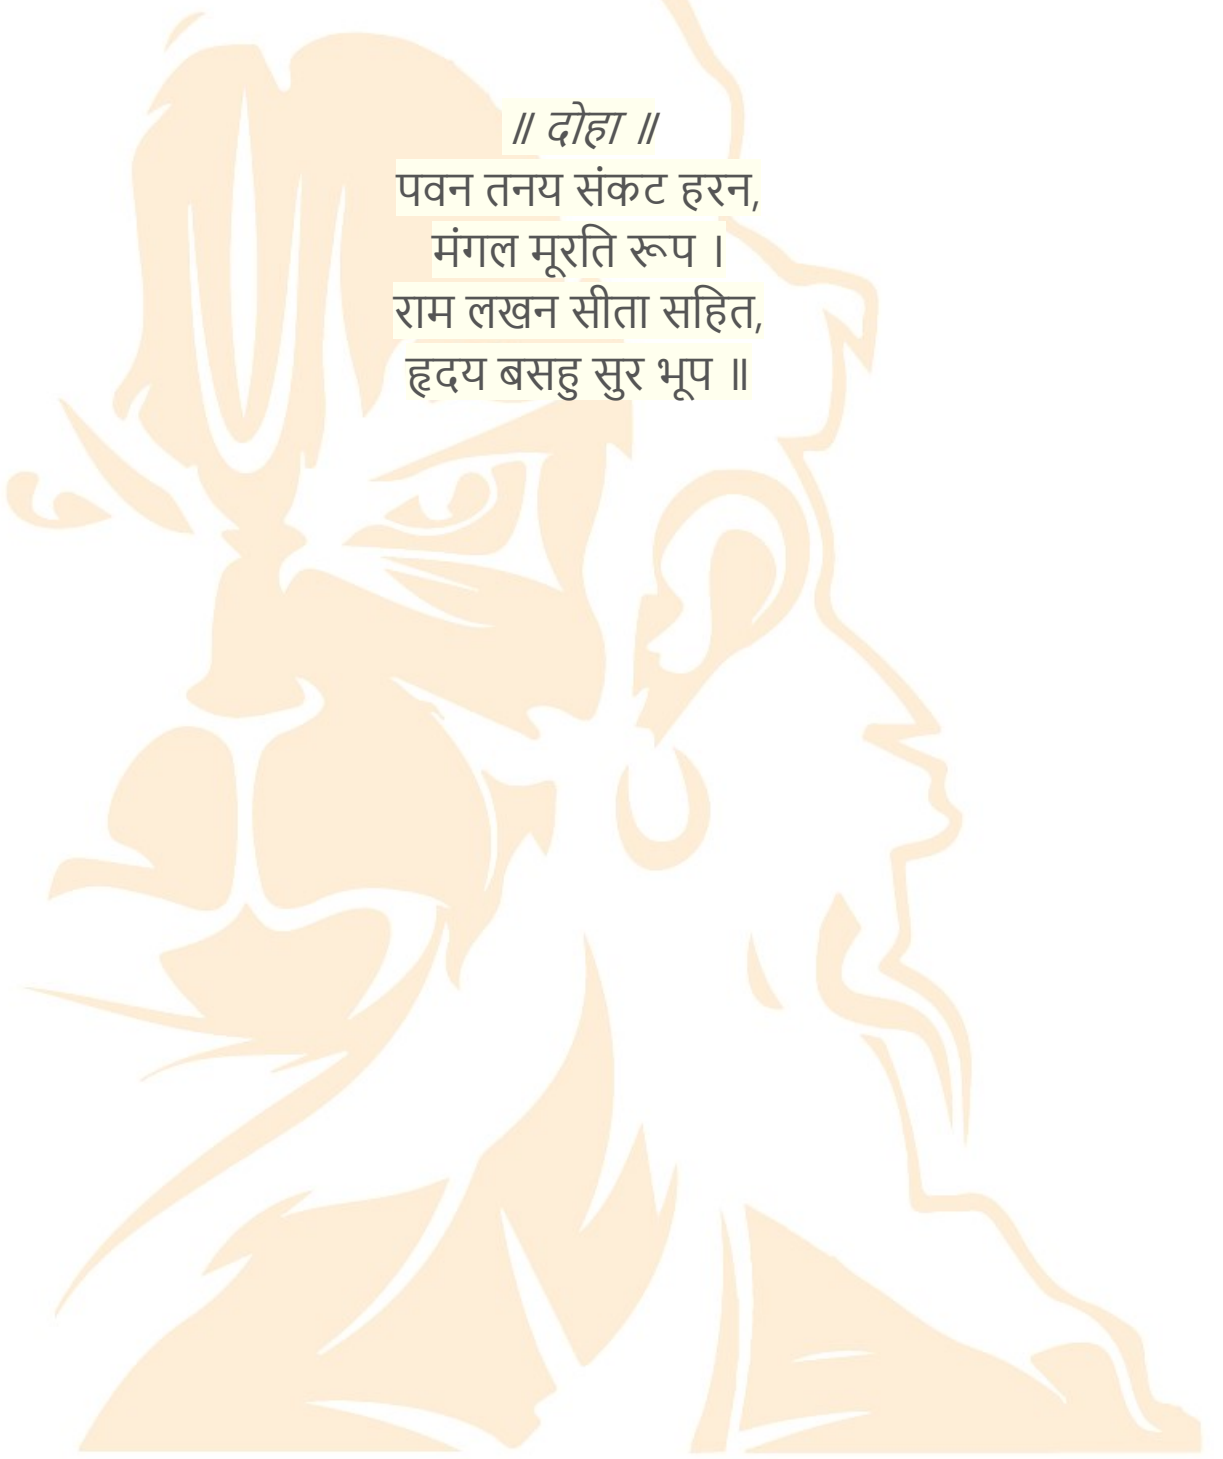 ॥ दोहा ॥
पवन तनय संकट हरन,
मंगल मूरति रूप ।
राम लखन सीता सहित,
हृदय बसहु सुर भूप ॥